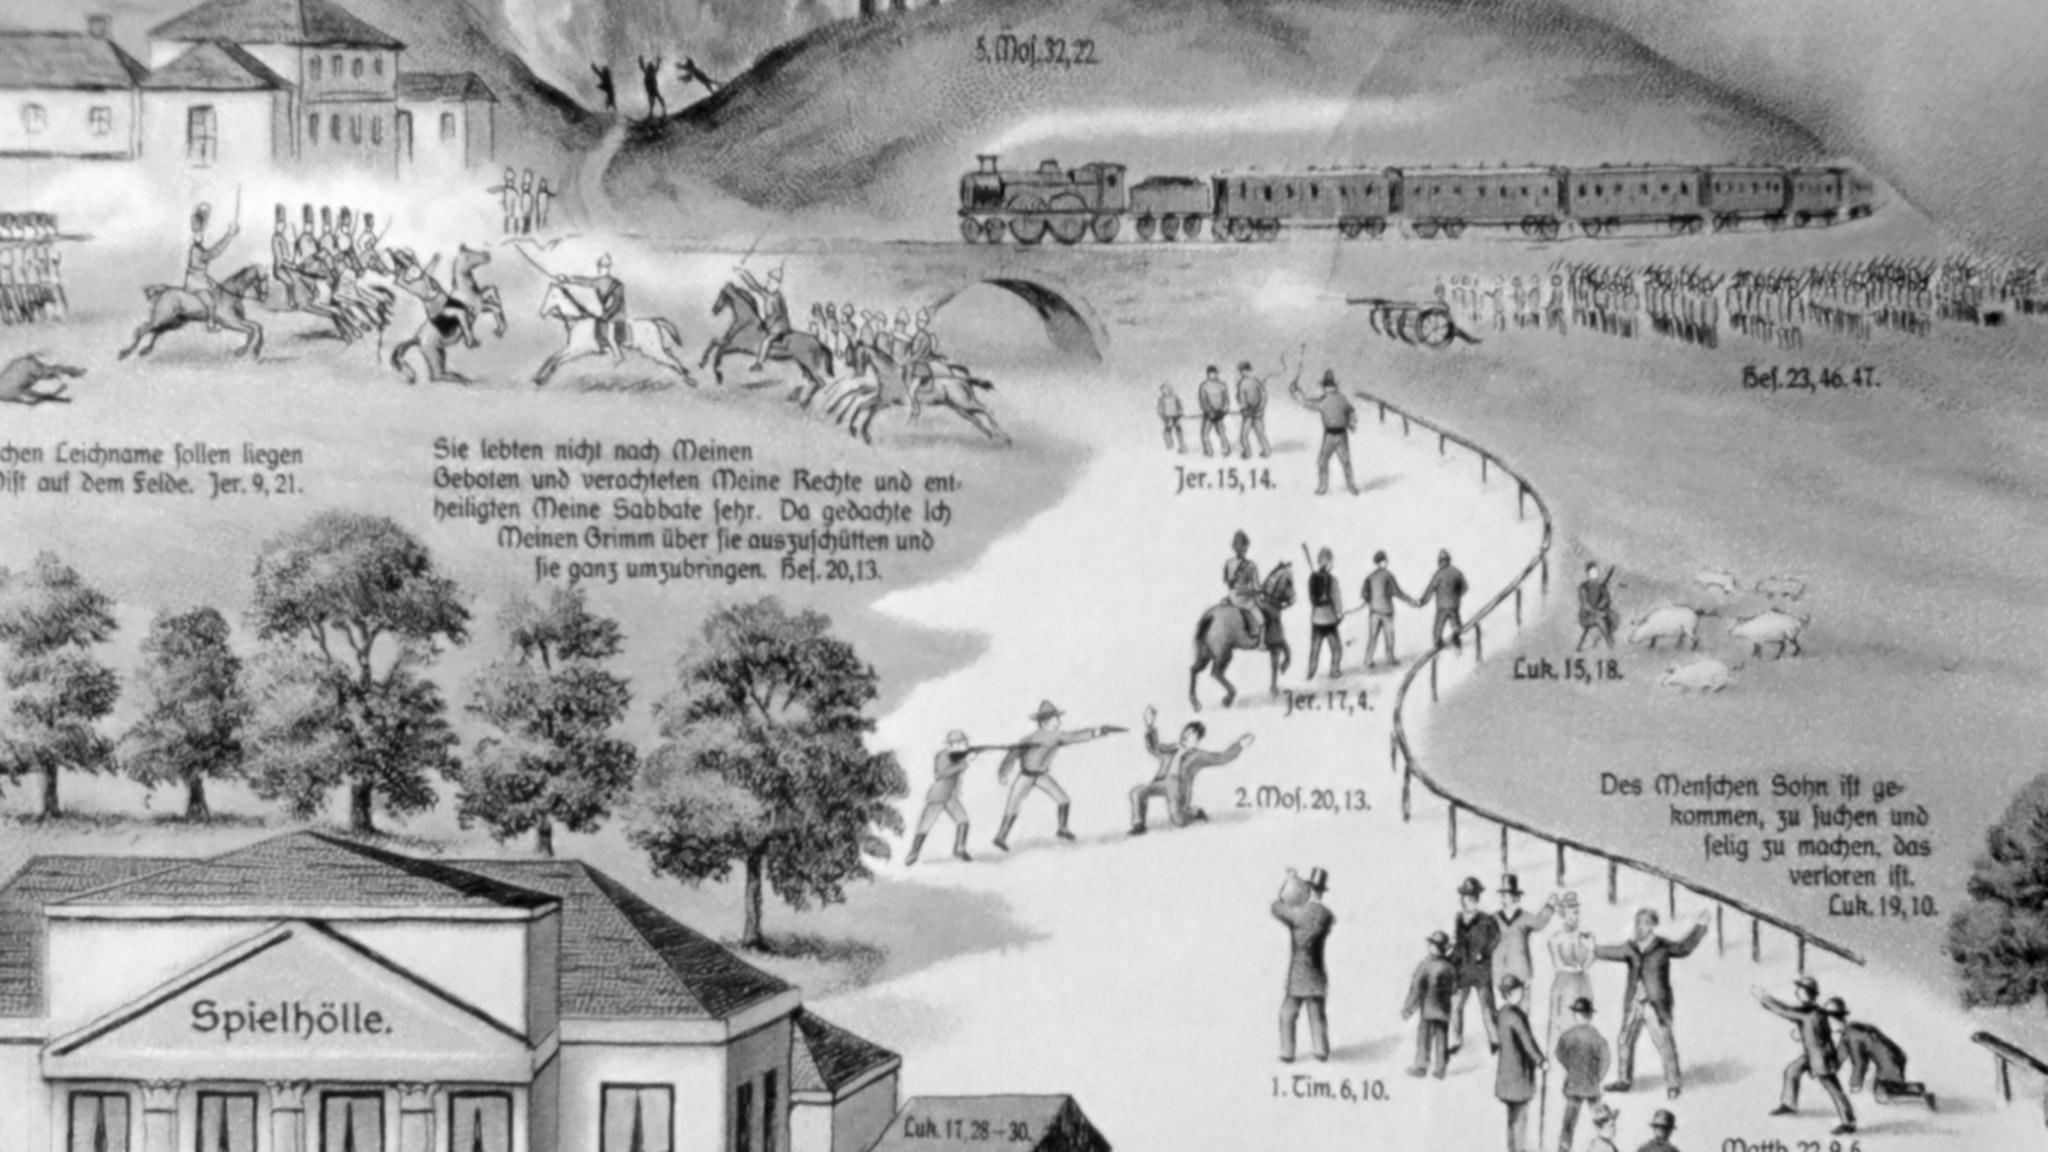 5. Mos. 32, 22.
Hes. 23, 46. 47.
chen Leichname sollen liegen
Mist auf dem Felde. Jer. 9, 21.
Sie lebten nicht nach Meinen
Geboten und verachteten Meine Rechte und ent-
heiligten Meine Sabbate sehr. Da gedachte Ich
Meinen Grimm über sie auszuschütten und
sie ganz umzubringen. Hes. 20, 13.
Jer. 15, 14.
Luk. 15, 18.
Jer. 17, 4.
2. Mos. 20, 13.
Des Menschen Sohn ist ge-
kommen, zu suchen und
selig zu machen, das
verloren ist.
Luk. 19, 10.
Spielhölle.
1. Tim. 6, 10.
Luk. 17, 28–30.
Matth. 22,